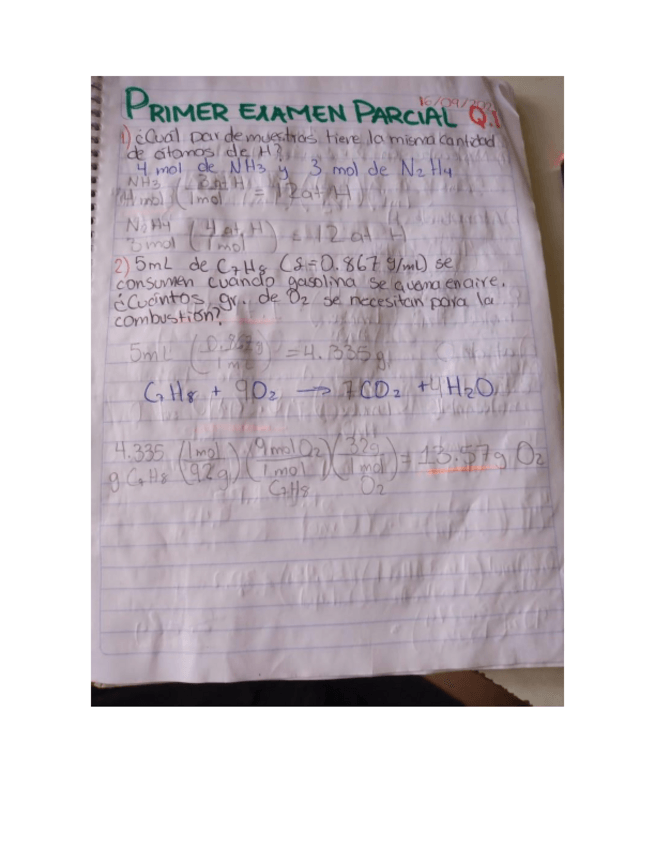 16/09/202
PRIMER EXAMEN PARCIAL Q.1
1) ¿Cuál par de muestras tiene la misma cantidad
de átomos de H?
4 mol de NH3 y 3 mol de N2H4
NH3
4 mol (3 at H / 1 mol) = 12 at H
N2H4
3 mol (4 at H / 1 mol) = 12 at H
2) 5mL de C7H8 (δ=0.867 g/mL) se
consumen cuando gasolina se quema en aire.
¿Cuántos gr. de O2 se necesitan para la
combustión?
5mL (0.867g / 1mL) = 4.335g
C7H8 + 9O2 → 7CO2 + 4H2O
4.335 g C7H8 (1mol / 92g) (9mol O2 / 1mol C7H8) (32g / 1mol O2) = 13.57g O2